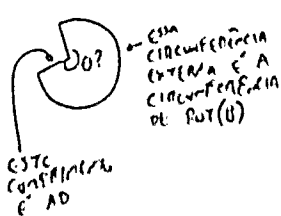 θ?
ESSA
CIRCUNFERÊNCIA
EXTERNA É A
CIRCUNFERÊNCIA
DE
ESTE
COMPRIMENTO
É AD